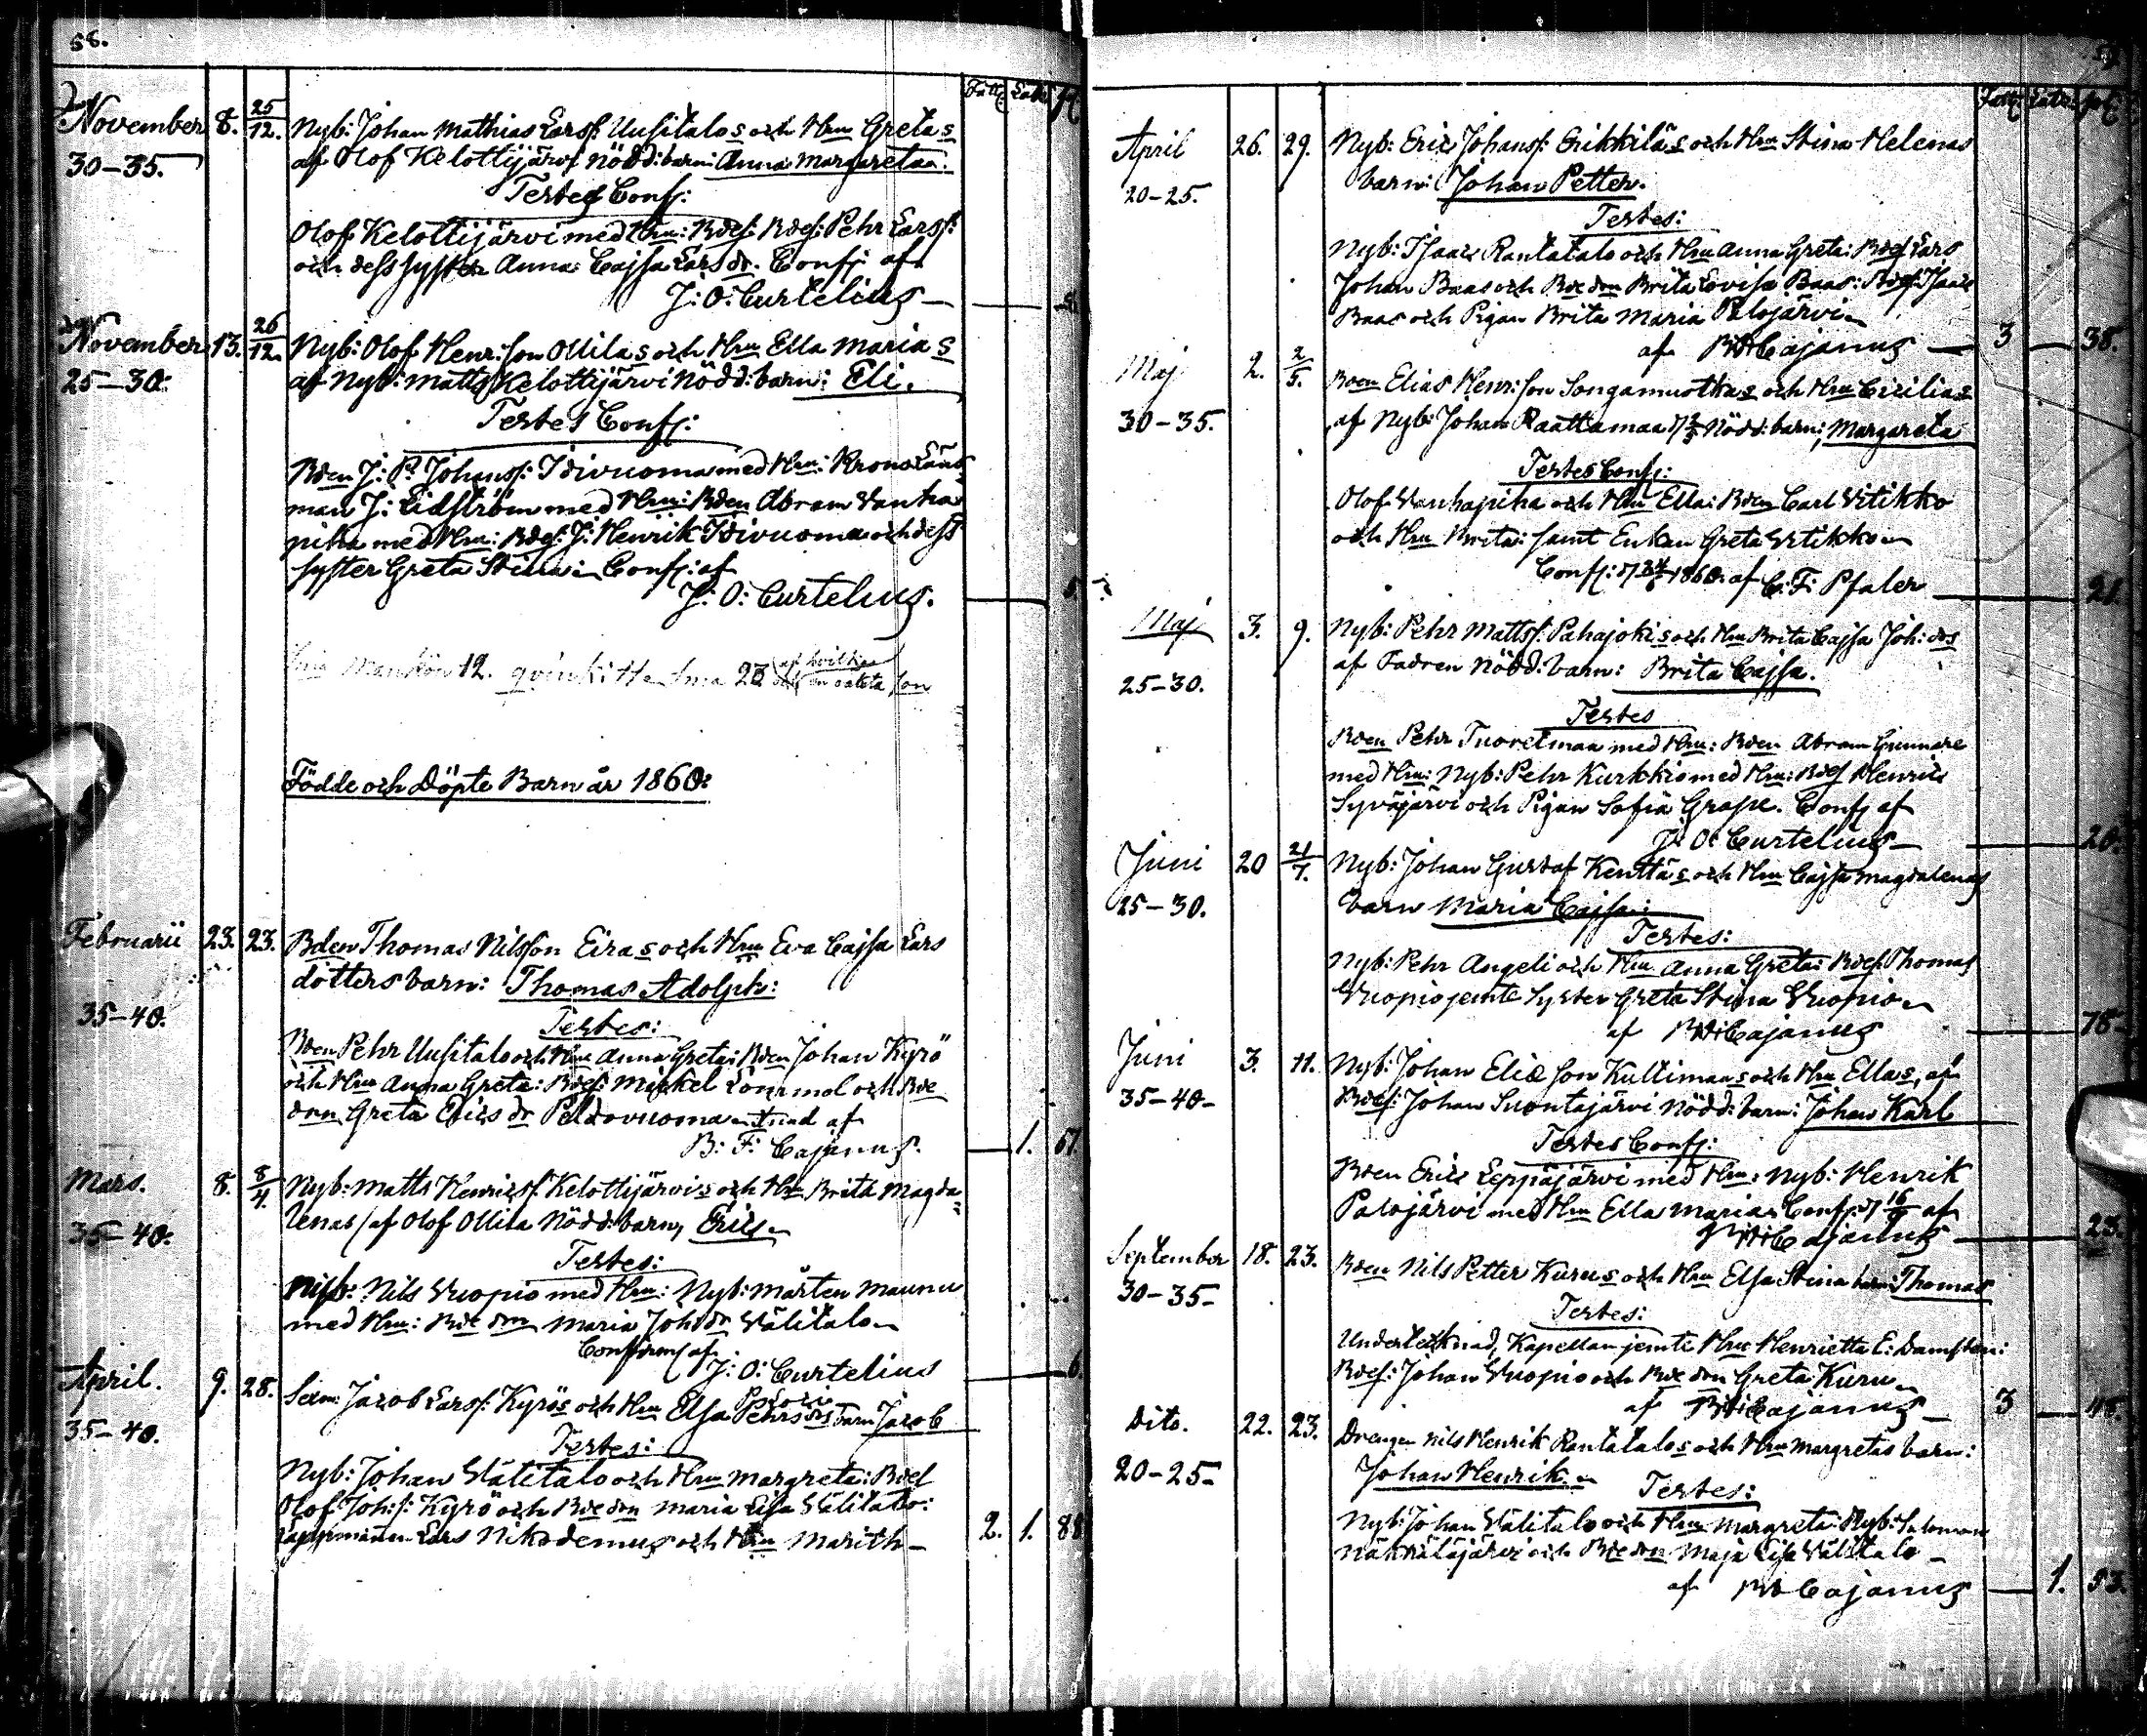 58.
Fattg. Latr. pC.
November 8. 25/12. Nyb: Johan Mathias Larss: Uusitalos och Hru Gretas
30–35. af Olof Kelottijärvi nödd: barn: Anna Margareta.
Testes Conf:
Olof Kelottijärvi med Hru: Pehr Larss:
och dess syster Anna Cajsa Lars dr. Conf: af
J: O: Curtelius –
November 13. 26/12. Nyb: Olof Henr: son Ollilas och Hru Ella Marias
25–30. af Nyb: Matts Kelottijärvi nödd: barn: Eli.
Testes Conf:
Bden J: P. Johanss: Idivuoma med Hru: Krono Läns
man J: Lidström med Hru: Bden Abram Vanha
piha med Hru: J: Henrik Idivuoma och dess
syster Greta Stina: Conf: af
J: O: Curtelius. 5
mankön 12. qvinkön 23
Födde och Döpte Barn år 1860:
Februarii 23. 23. Bden Thomas Nilsson Eiras och Hru Eva Cajsa Lars
dotters barn: Thomas Adolph:
35–40. Testes:
Bden Pehr Uusitalo och Hru Anna Greta: Bden Johan Kyrö
och Hru Anna Greta: Mickel och Bde
don Greta Erics dr Peldovuoma af
B: F: Cajanus. 1. 51.
Mars. 8. 8/4. Nyb: Matts Henricss: Kelottijärvis och Hru Brita Magda
35–40. lenas / af Olof Ollila nödd: barn, Eric.
Testes:
Nyb: Nils Vuopio med Hru: Nyb: Mårten Maunu
med Hru: Bde don Maria Joh: dr Välitalo
Confirm: af
J: O: Curtelius 6.
April. 9. 28. Jacob Larss: Kyrös och Hru Elsa Pehrs drs barn Jacob
35–40. Testes:
Nyb: Johan Välitalo och Hru Margreta: Bdes
Olof Joh: s: Kyrö och Bde don Maria Lisa Välitalo:
Lappmannen Lars Nikodemus och Hru Marith – 2. 1. 88
59.
Fattg. Latr. pC.
April 26. 29. Nyb: Eric Johanss: Erikkiläs och Hru Stina Helenas
20–25. barn: Johan Petter.
Testes:
Nyb: Isaac Rantatalo och Hru Anna Greta: Bdes Lars
Johan Baas och Bde don Brita Lovisa Baas: Bdes: Isaac
Baas och Pigan Brita Maria Palojärvi
af Cajanus – 3 38.
Maj 2. 2/5. Bden Elias Henr: son Songamuotkas och Hru Cicilias
30–35. af Nyb: Johan Raattamaa nödd: barn: Margareta
Testes Conf:
Olof Vanhapiha och Hru Ella: Bden Carl Vitikko
och Hru Brita: samt Enkan Greta Vitikko
Conf: 1860. af C: F: Pfaler 21.
Maj 3. 9. Nyb: Pehr Mattss: Pahajokis och Hru Brita Cajsa Joh: drs
25–30. af Fadren nödd: barn: Brita Cajsa.
Testes
Bden Pehr Tuoretmaa med Hru: Bden Abram Gunnare
med Hru: Nyb: Pehr Kurkkio med Hru: Bdes Henric
Syväjärvi och Pigan Sofia Grape. Conf af
J: O: Curtelius – 20.
Juni 20 21/7. Nyb: Johan Gustaf Kenttäs och Hru Cajsa Magdalenas
25–30. barn Maria Cajsa:
Testes:
Nyb: Pehr Angeli och Hru Anna Greta: Bdes. Thomas
Vuopio jemte Syster Greta Stina Vuopio
af Cajanus 78
Juni 3. 11. Nyb: Johan Elias son Kultimaas och Hru Ellas, af
35–40– Bdes: Johan Suontajärvi nödd: barn: Johan Karl
Testes Conf:
Bden Eric Leppäjärvi med Hru: Nyb: Henrik
Palojärvi med Hru Ella Maria: Conf: af
Cajanus 23.
September 18. 23. Bden Nils Petter Kurus och Hru Elsa Stina barn: Thomas
30–35– Testes:
Undertecknad, Kapellan jemte Hru Henrietta E:
Bdes: Johan Vuopio och Bde don Greta Kuru
af Cajanus – 3 48.
Dito. 22. 23. Drengen Nils Henrik Rantatalos och Hru Margretas barn:
20–25– Johan Henrik.
Testes:
Nyb: Johan Välitalo och Hru Margreta: Nyb: Salomon
Näkkäläjärvi och Bde don Maja Lisa Välitalo –
af Cajanus – 1. 53.